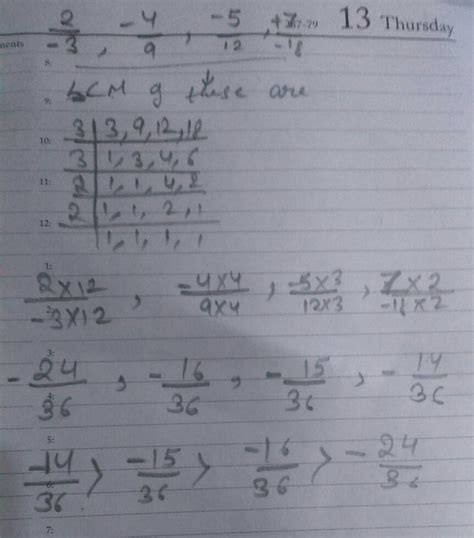 2/-3, -4/9, -5/12, +7/-18 13 Thursday
8:
9: LCM of these are
10: 3 | 3, 9, 12, 18
3 | 1, 3, 4, 6
11: 2 | 1, 1, 4, 2
12: 2 | 1, 1, 2, 1
1, 1, 1, 1
1:
2×12/-3×12, -4×4/9×4, -5×3/12×3, 7×2/-18×2
3:
-24/36, -16/36, -15/36, -14/36
5:
-14/36 > -15/36 > -16/36 > -24/36
6:
7: